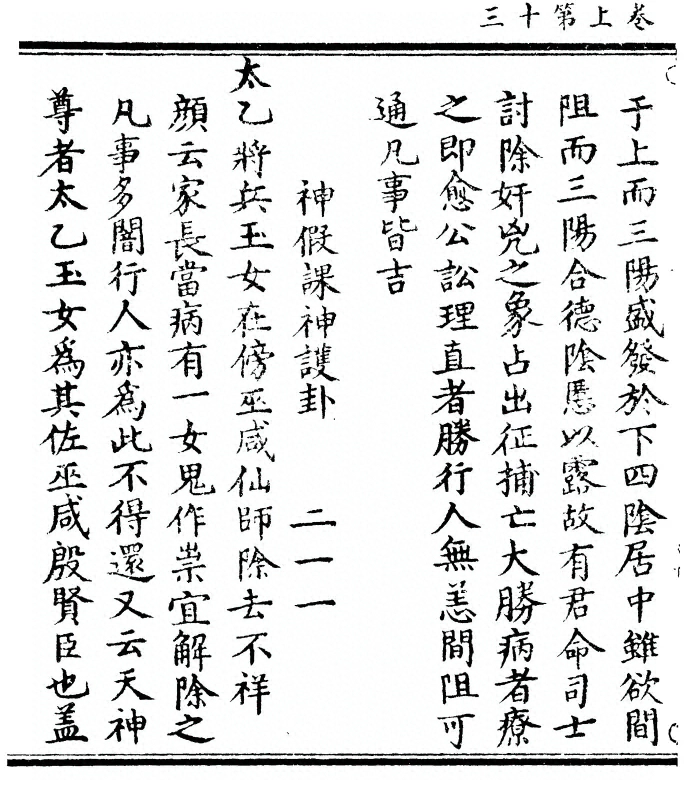 卷上第十三
于上而三陽盛發於下四陰居中雖欲間
阻而三陽合德陰慝以露故有君命司士
討除奸兇之象占出征捕亡大勝病者療
之即愈公訟理直者勝行人無恙間阻可
通凡事皆吉
神假課神護卦 二一一
太乙將兵玉女在傍巫咸仙師除去不祥
顔云家長當病有一女鬼作祟宜解除之
凡事多闇行人亦為此不得還又云天神
尊者太乙玉女為其佐巫咸殷賢臣也盖